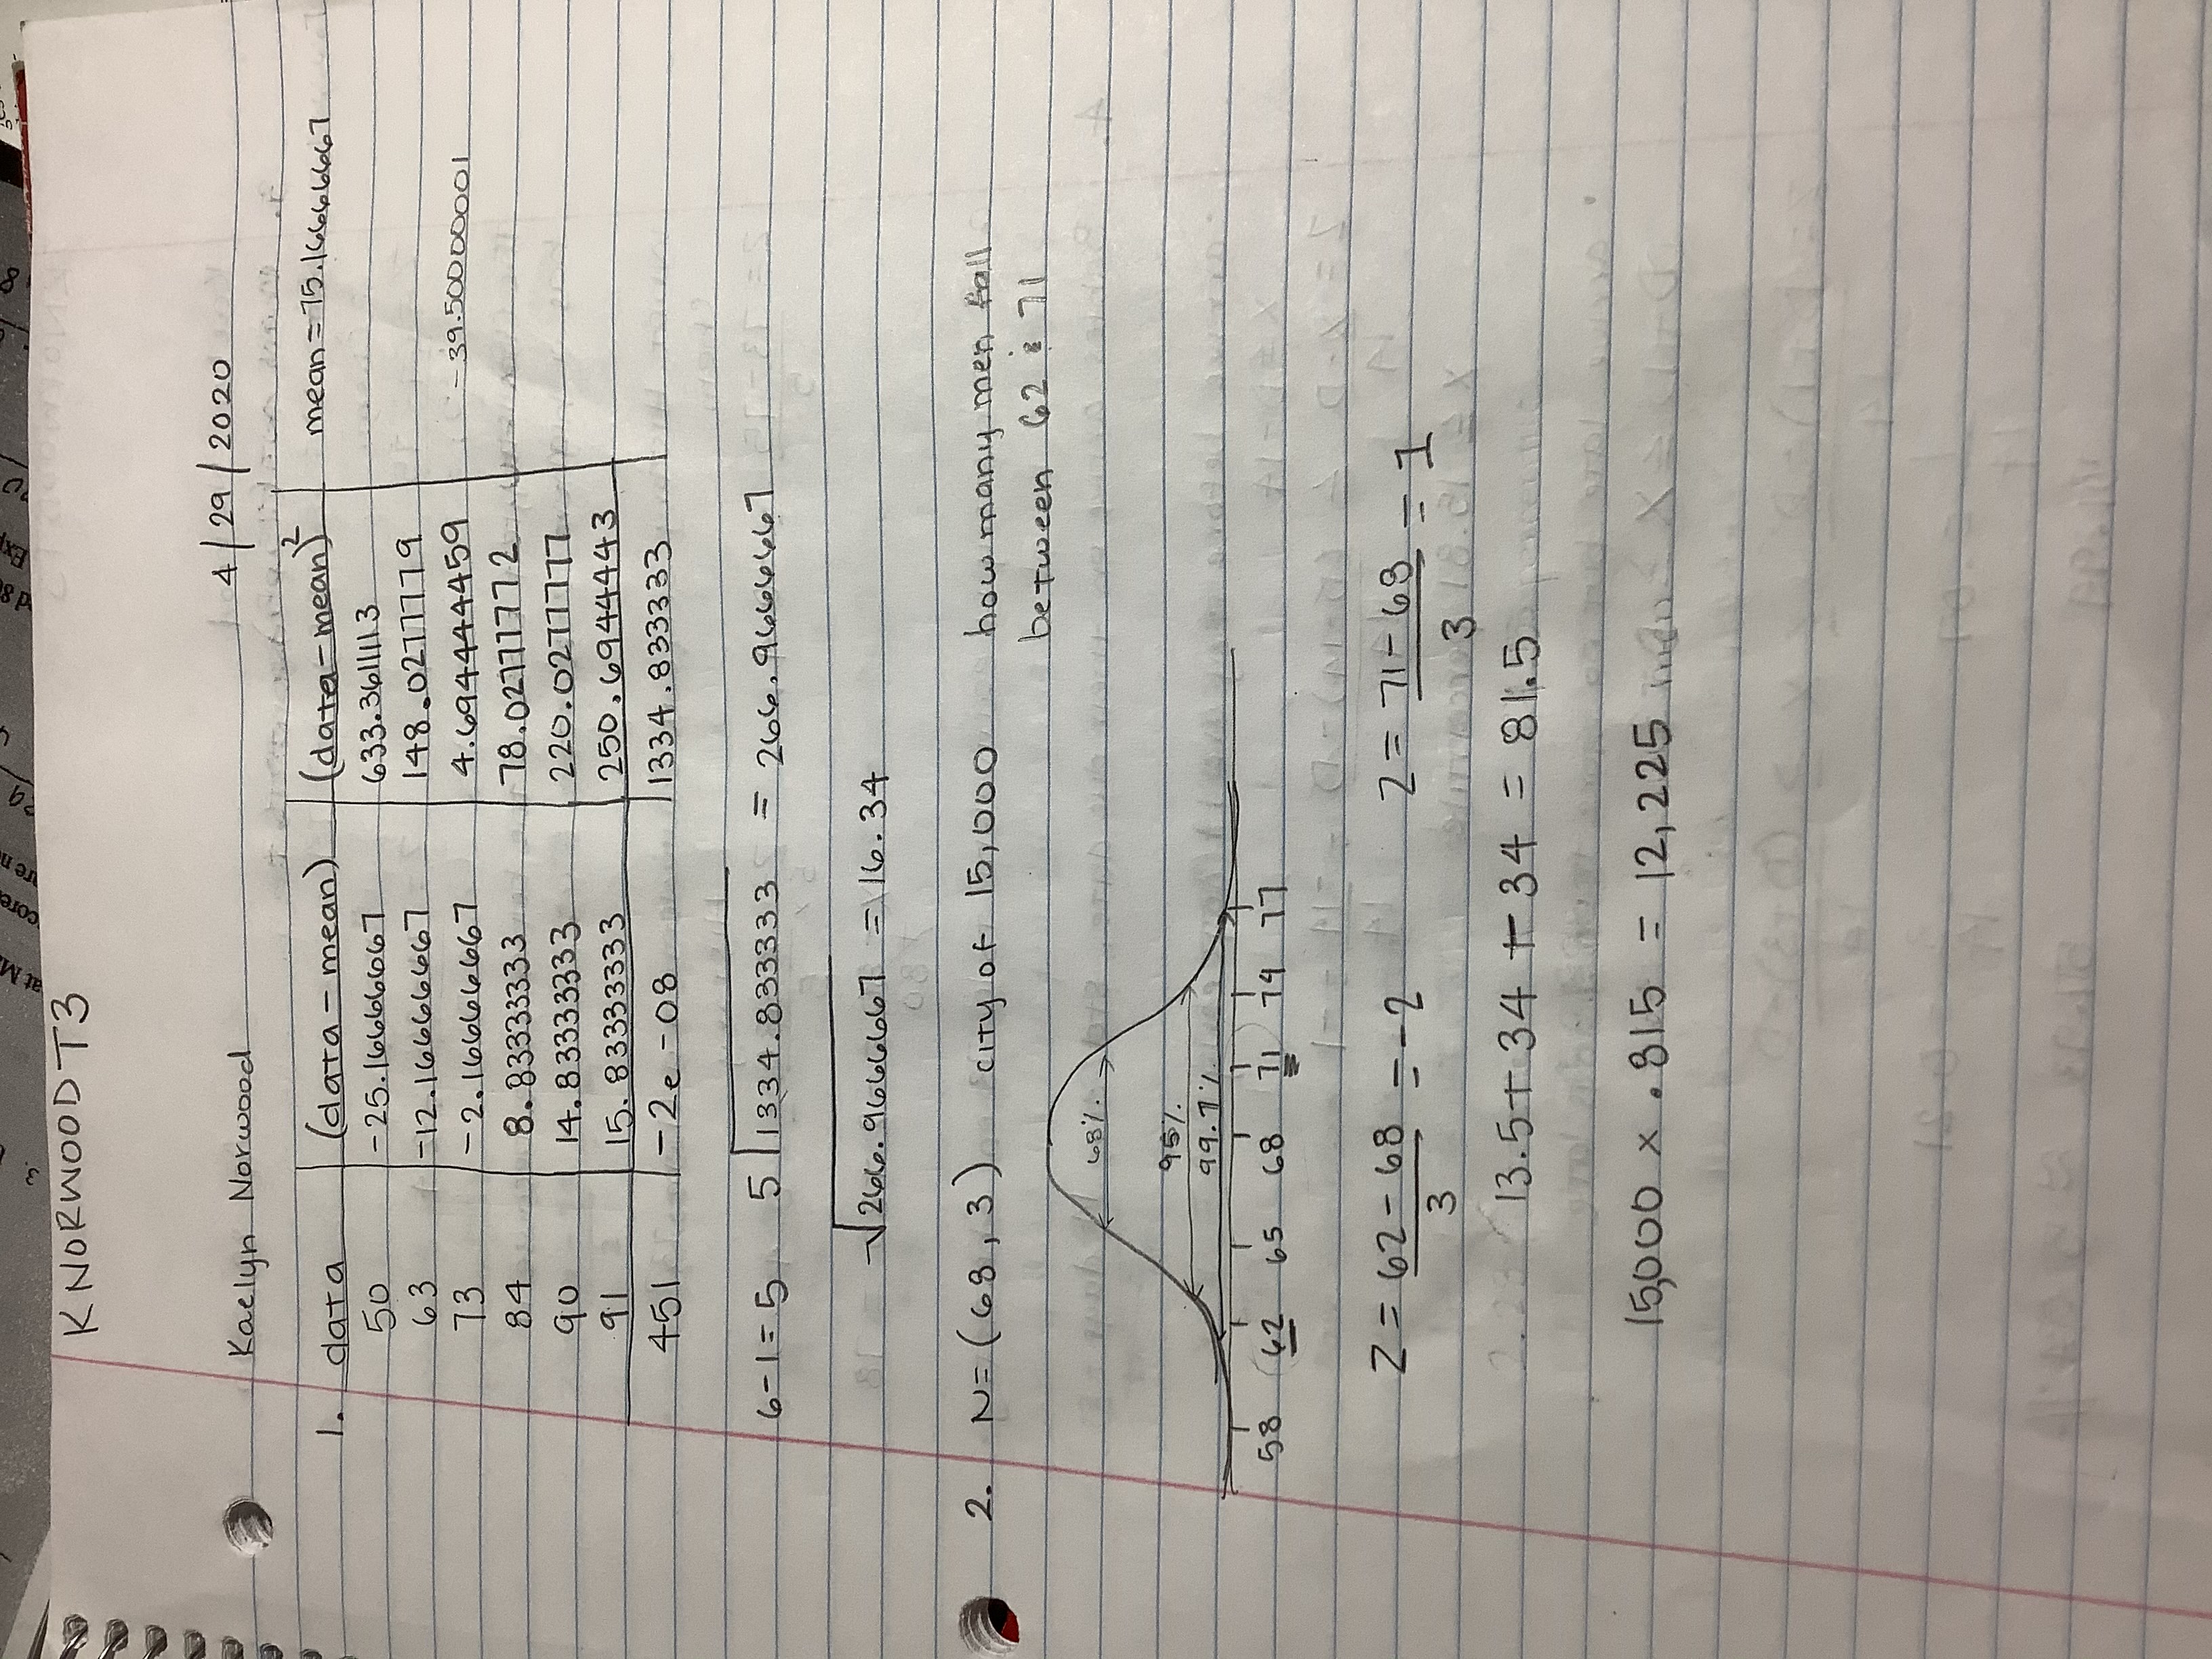 KNORWOODT3
Kaelyn Norwood 4/29/2020
1. data (data-mean) (data-mean)² mean=75.16666667
50 -25.16666667 633.3611113
63 -12.16666667 148.0277779
73 -2.16666667 4.694444459 -39.50000001
84 8.83333333 78.02777772
90 14.83333333 220.0277777
91 15.83333333 250.6944443
451 -2e-08 1334.833333
6-1=5 5 1334.833333 = 266.9666667
√266.9666667 = 16.34
2. N=(68,3) city of 15,000 how many men fall
between 62 & 71
68%
95%
99.7%
58 62 65 68 71 74 77
Z = 62-68 = -2 Z = 71-68 = 1
3 3
13.5+34+34 = 81.5
15,000 x .815 = 12,225